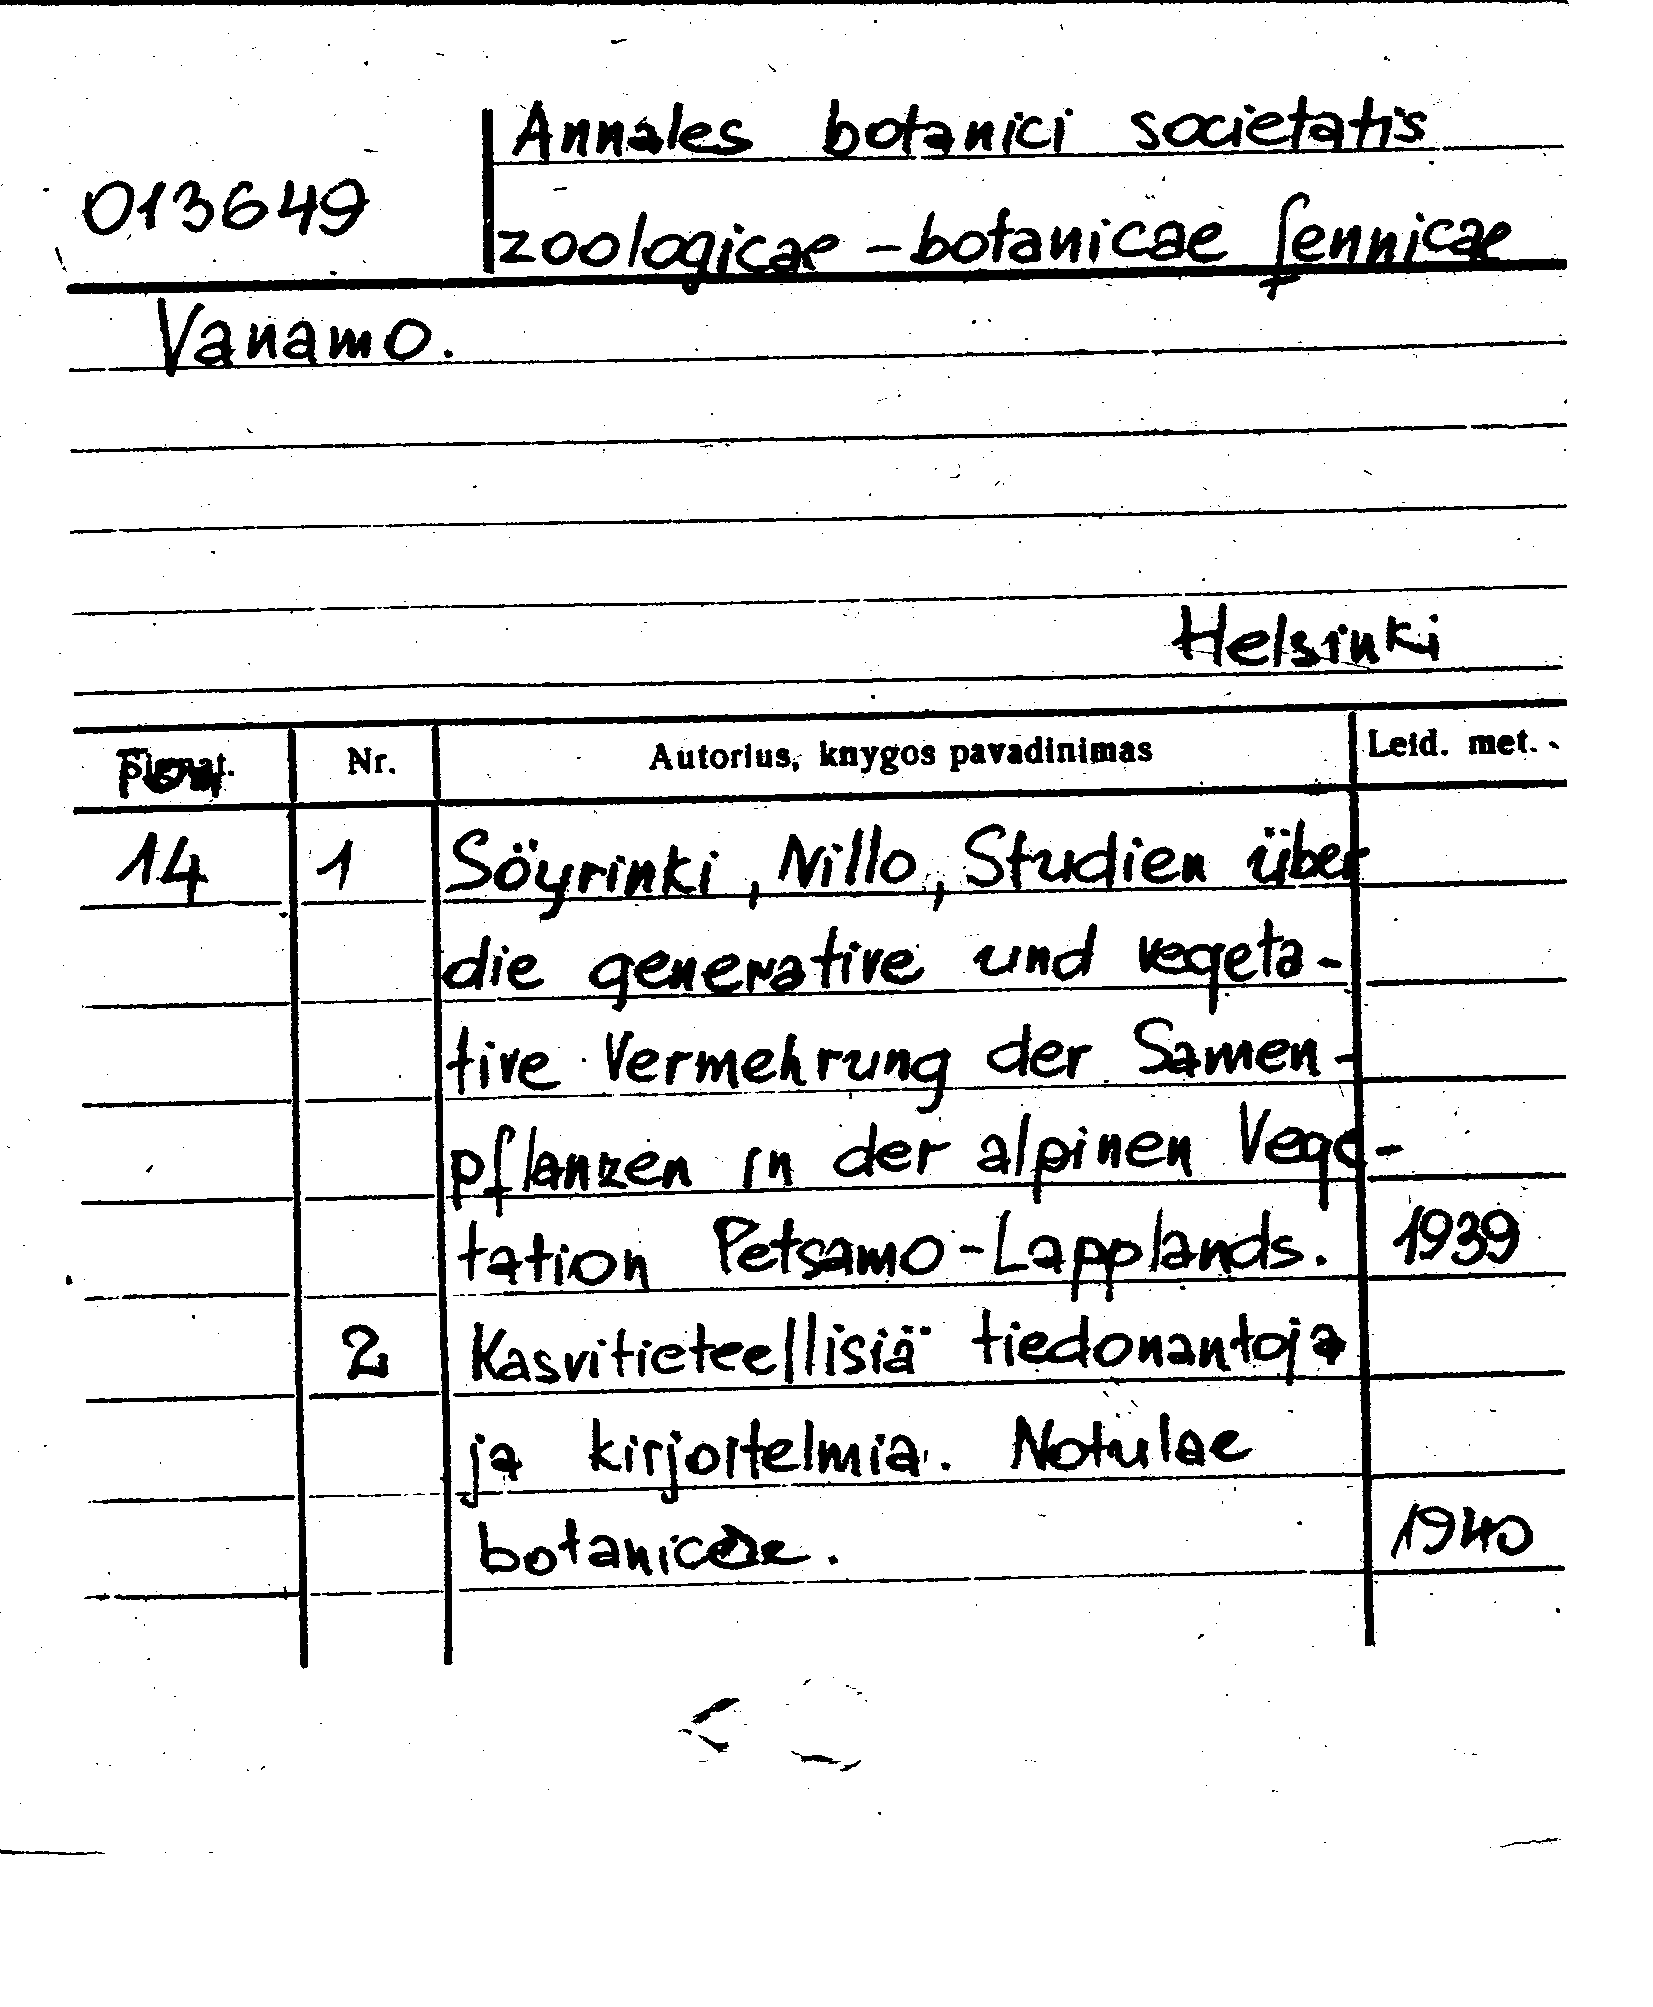 Annales botanici societatis
013649
zoologicae - botanicae fennicae
Vanamo.
Helsinki
Nr. Autorius, knygos pavadinimas Leid. met.
14 1 Söyrinki, Nillo, Studien über
die generative und vegeta-
tive Vermehrung der Samen-
pflanzen in der alpinen Vege-
tation Petsamo-Lapplands. 1939
2 Kasvitieteellisiä tiedonantoja
ja kirjoitelmia. Notulae
botanicae. 1940